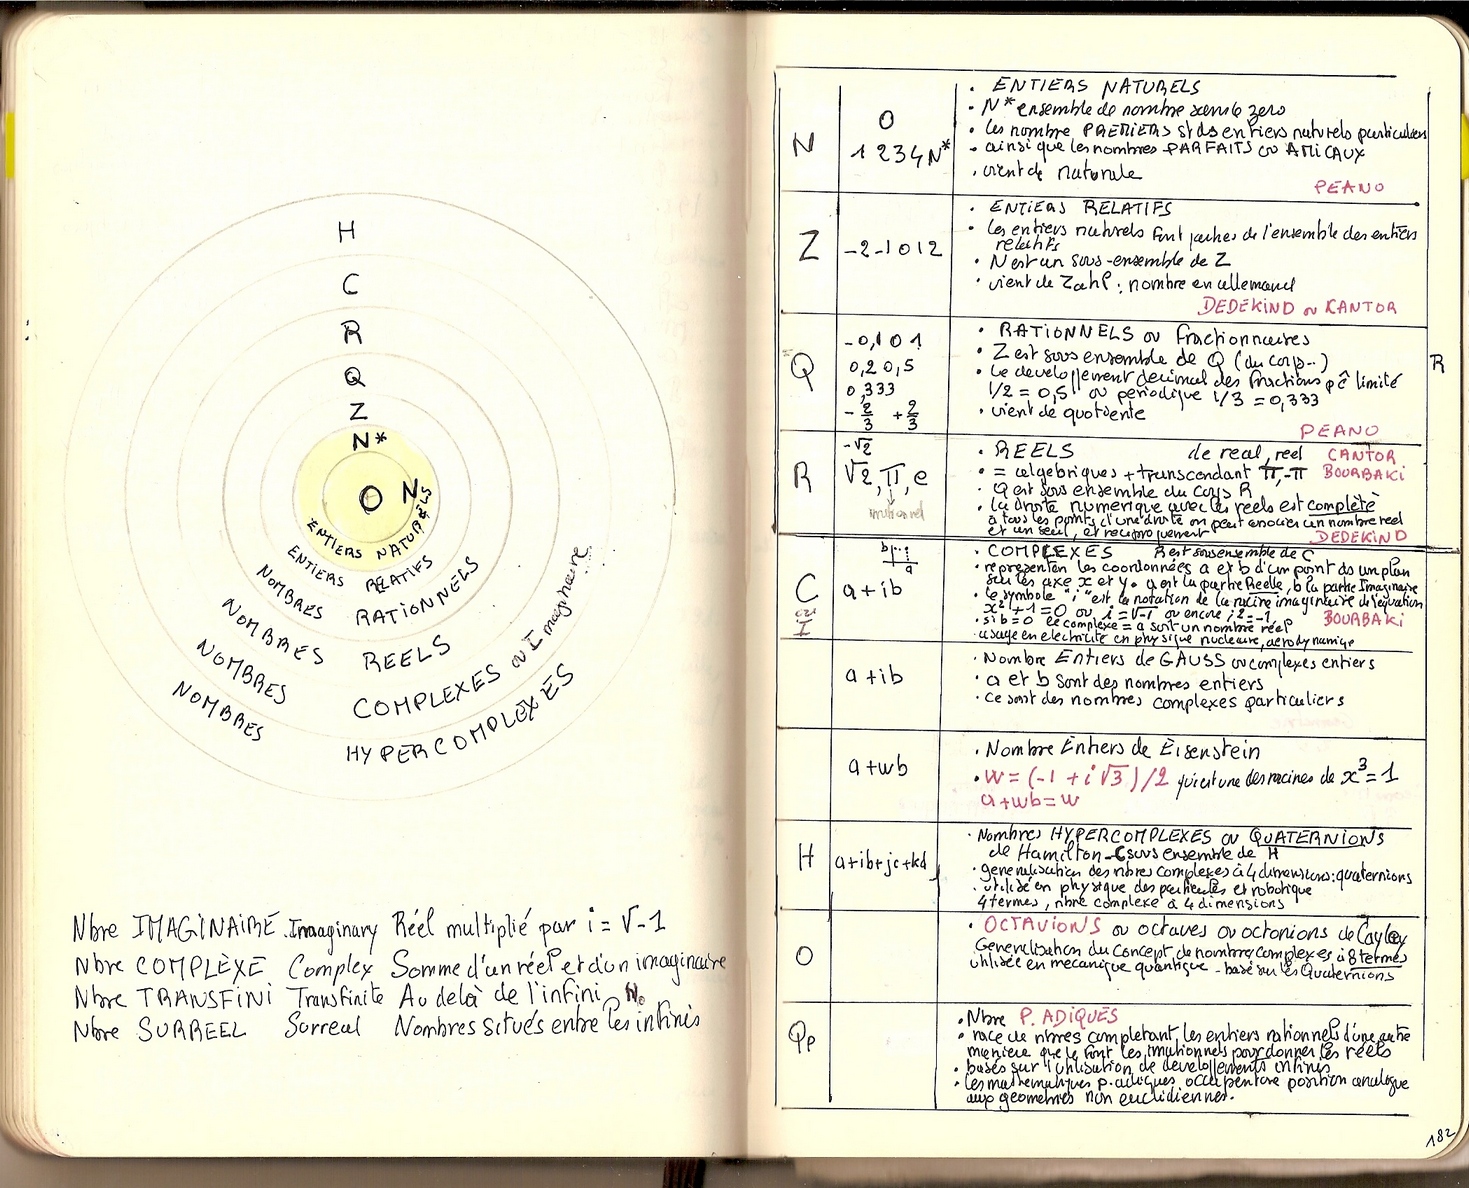 H
C
R
Q
Z
N*
O N
ENTIERS NATURELS
ENTIERS RELATIFS
NOMBRES RATIONNELS
NOMBRES REELS
NOMBRES COMPLEXES ou Imaginaire
NOMBRES HYPERCOMPLEXES
Nbre IMAGINAIRE Imaginary Réel multiplié par i = √-1
Nbre COMPLEXE Complex Somme d'un réel et d'un imaginaire
Nbre TRANSFINI Transfinite Au delà de l'infini
Nbre SURREEL Surreal Nombres situés entre les infinis
N
0
1 2 3 4 N*
• ENTIERS NATURELS
• N* ensemble de nombre sans le zero
• les nombre PREMIERS st ds entiers naturels particuliers
• ainsi que les nombres PARFAITS ou AMICAUX
• vient de naturale
PEANO
Z
-2-1 0 1 2
• ENTIERS RELATIFS
• les entiers naturels font parties de l'ensemble des entiers
relatifs
• N est un sous-ensemble de Z
• vient de Zahl : nombre en allemand
DEDEKIND ou CANTOR
Q
-0,1 0 1
0,2 0,5
0,333
-2/3 +2/3
• RATIONNELS ou fractionnaires
• Z est sous ensemble de Q (du corps..)
• Le developpement decimal des fractions pê limité
1/2 = 0,5 ou periodique 1/3 = 0,333
• vient de quotiente
PEANO
R
R
-√2
√2, π, e
irrationnel
• REELS de real, reel CANTOR
• = algebriques + transcendant π, -π BOURBAKI
• Q est sous ensemble du corps R
• la droite numerique avec les reels est complète
à tous les points d'une droite on peut associer un nombre reel
et un seul, et reciproquement
DEDEKIND
C
ou
I
b
a
a + ib
• COMPLEXES R est sous ensemble de C
• representen les coordonnées a et b d'un point ds un plan
sur les axe x et y. a est la partie Réelle, b la partie Imaginaire
• le symbole "i" est la notation de la racine imaginaire de l'equation
x²+1=0 ou i=√-1 ou encore i²=-1
BOURBAKI
• si b=0 le complexe = a soit un nombre réel
• usage en electricité en physique nucleaire, aerodynamique
a + ib
• Nombre Entiers de GAUSS ou complexes entiers
• a et b sont des nombres entiers
• ce sont des nombres complexes particuliers
a + wb
• Nombre Entiers de Eisenstein
• w = (-1 + i√3)/2 qui est une des racines de x³=1
a + wb = w
H
a+ib+jc+kd
• Nombres HYPERCOMPLEXES ou QUATERNIONS
de Hamilton - C sous ensemble de H
• generalisation des nbres complexes à 4 dimensions: quaternions
• utilisé en physique des particules et robotique
4 termes, nbre complexe à 4 dimensions
O
• OCTAVIONS ou octaves ou octonions de Cayley
Generalisation du concept de nombre complexes à 8 termes
utilisée en mecanique quantique - basé sur les Quaternions
Qp
• Nbre P. ADIQUES
• race de nbres completant les entiers rationnels d'une autre
maniere que le font les irrationnels pour donner les réels
• basés sur l'utilisation de developpements infinis
• les mathematiques p.adiques occupent une position analogue
aux geometries non euclidiennes.
182